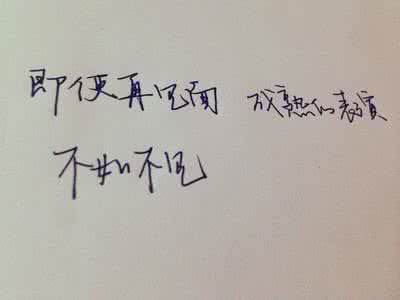 即便再见面 成熟的表演
不如不见